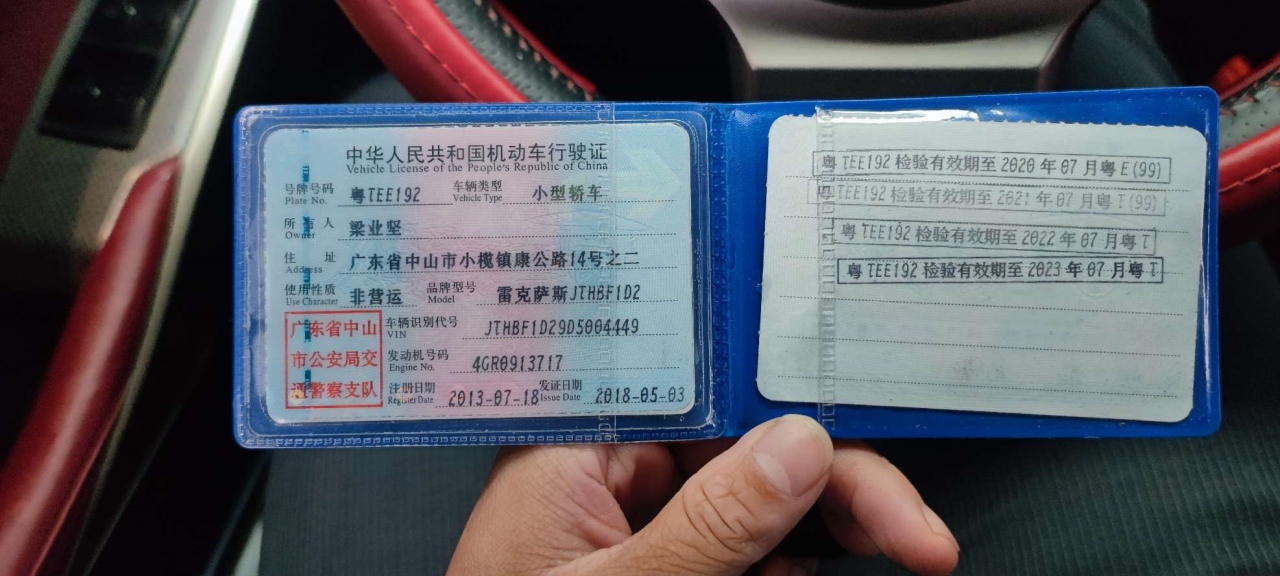 中华人民共和国机动车行驶证
Vehicle License of the People's Republic of China
号牌号码 粤TEE192 车辆类型 小型轿车
Plate No. Vehicle Type
所有人 梁业坚
Owner
住址 广东省中山市小榄镇康公路14号之二
Address
使用性质 非营运 品牌型号 雷克萨斯JTHBF1D2
Use Character Model
广东省中山
市公安局交
通警察支队
车辆识别代号 JTHBF1D29D5004449
VIN
发动机号码 4GR0913717
Engine No.
注册日期 2013-07-18 发证日期 2018-05-03
Register Date Issue Date
粤TEE192 检验有效期至 2020 年 07 月粤 E(99)
粤TEE192 检验有效期至 2021 年 07 月粤 T(99)
粤TEE192 检验有效期至 2022 年 07 月粤 T
粤TEE192 检验有效期至 2023 年 07 月粤 T